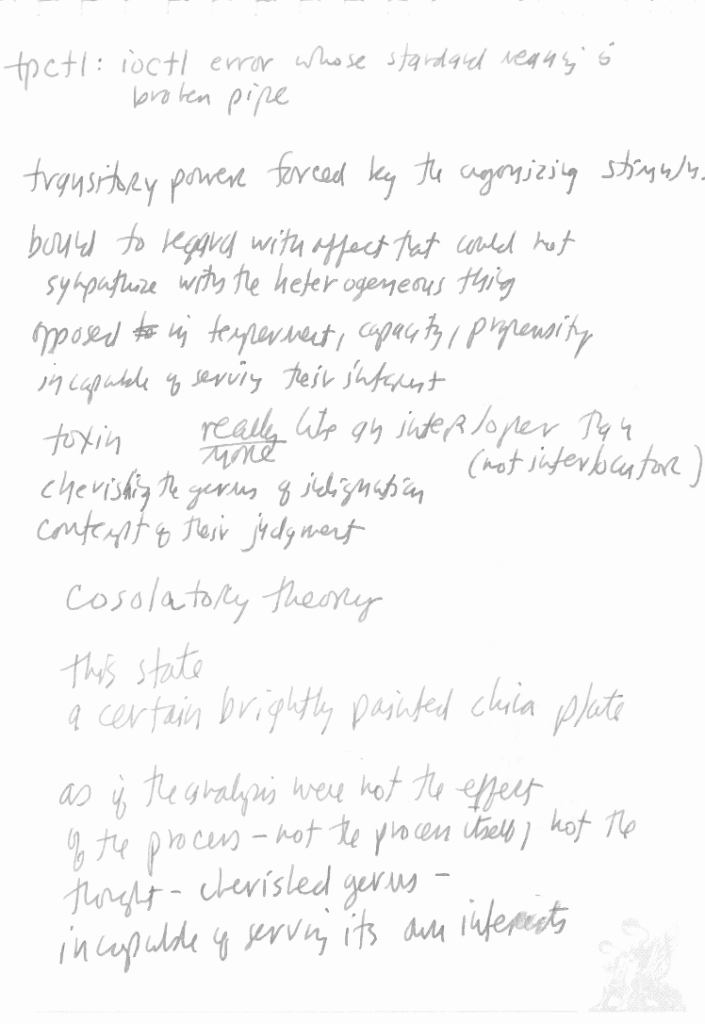 tpctl: ioctl error whose standard meaning is
broken pipe
transitory power forced by the agonizing stimulus
bound to regard with affect that could not
sympathize with the heterogeneous thing
opposed to in temperment, capacity, propensity
incapable of serving their interest
toxin really like an interloper than
more (not interlocutor)
cherishing the germs of indignation
contempt of their judgment
cosolatory theory
this state
a certain brightly painted china plate
as if the analysis were not the effect
of the process – not the process itself, not the
thought – cherished germs –
incapable of serving its own interests